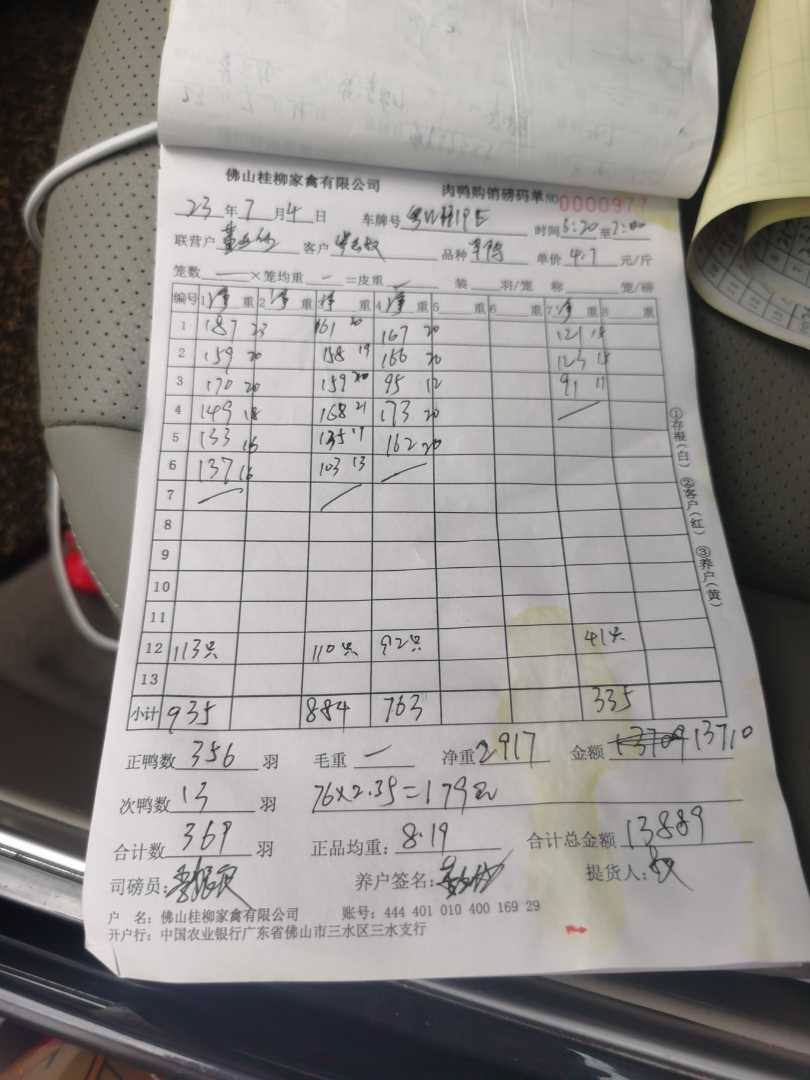 佛山桂柳家禽有限公司 肉鸭购销磅码单 NO 0000977
23 年 7 月 4 日 车牌号 时间 6:20 至 7:00
联营户 客户 品种 单价 4.7 元/斤
笼数 — ×笼均重 — =皮重 — 装 羽/笼 称 笼/磅
编号 1 净 重 2 净 重 3 净 重 4 净 重 5 重 6 重 7 净 重 8 重
1 187 23 161 20 167 20 121 15
2 159 20 158 19 166 20 123 15
3 170 20 159 20 95 12 91 11
4 149 18 168 21 173 20
5 133 16 135 17 162 20
6 137 16 103 13
7
8
9
10
11
12 113只 110只 92只 41只
13
小计 935 884 763 335
正鸭数 356 羽 毛重 — 净重 2917 金额 13709 13710
次鸭数 13 羽 76×2.35=179元
合计数 369 羽 正品均重: 8.19 合计总金额 13889
司磅员: 养户签名: 提货人:
户 名: 佛山桂柳家禽有限公司 账号: 444 401 010 400 169 29
开户行: 中国农业银行广东省佛山市三水区三水支行
①存根(白) ②客户(红) ③养户(黄)